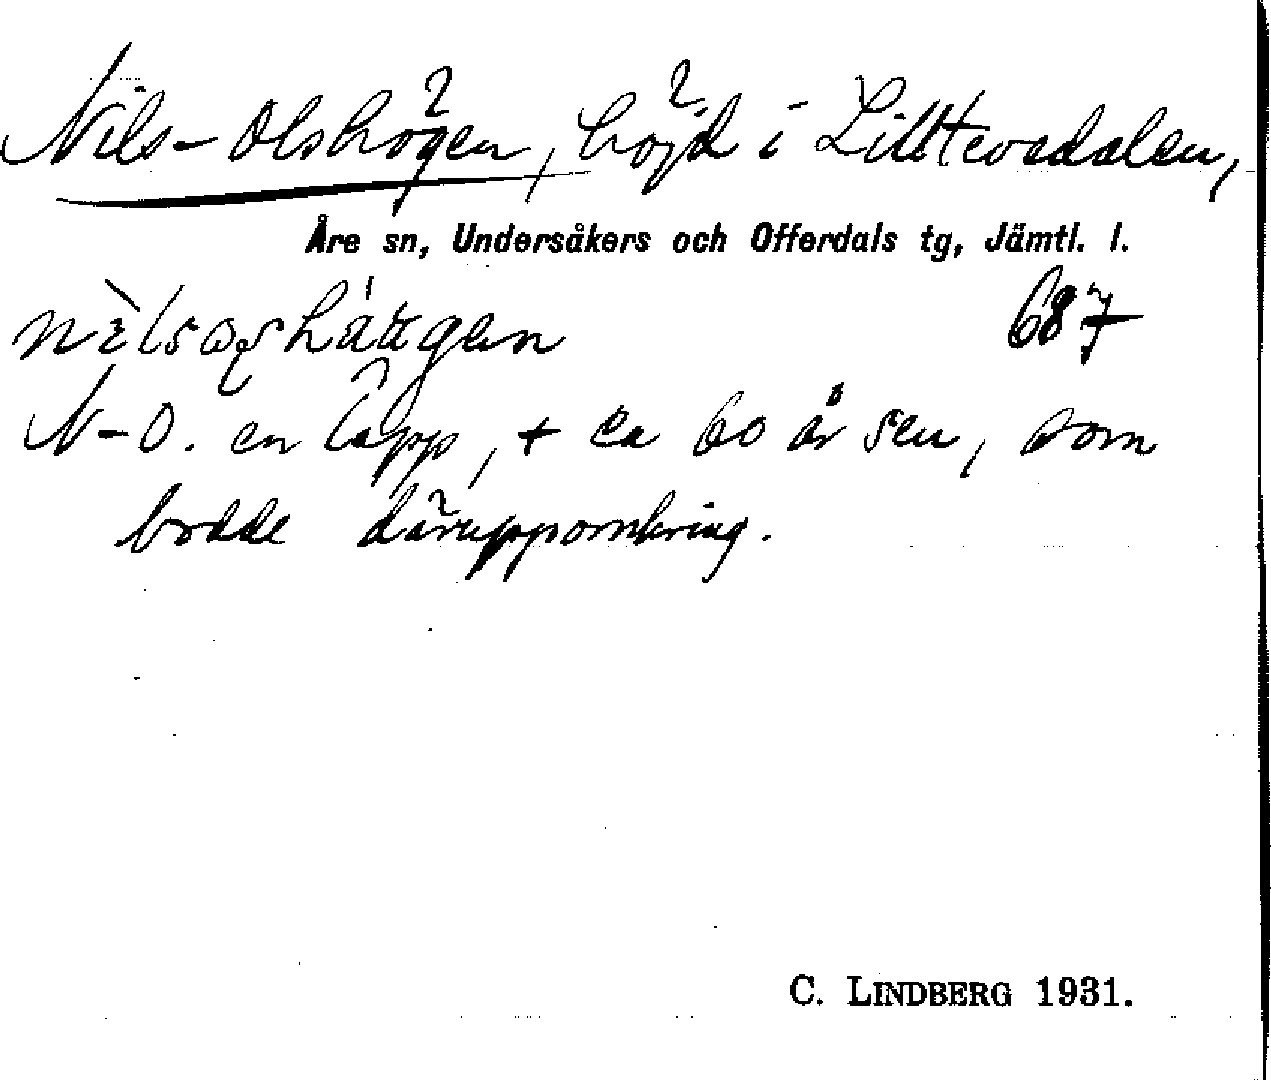 Nils-Olshögen, höjd i Lilltevedalen,
Åre sn, Undersåkers och Offerdals tg, Jämtl. l.
687
N-O. en lapp, + ca 60 år sen, som
bodde däruppomkring.
C. LINDBERG 1931.